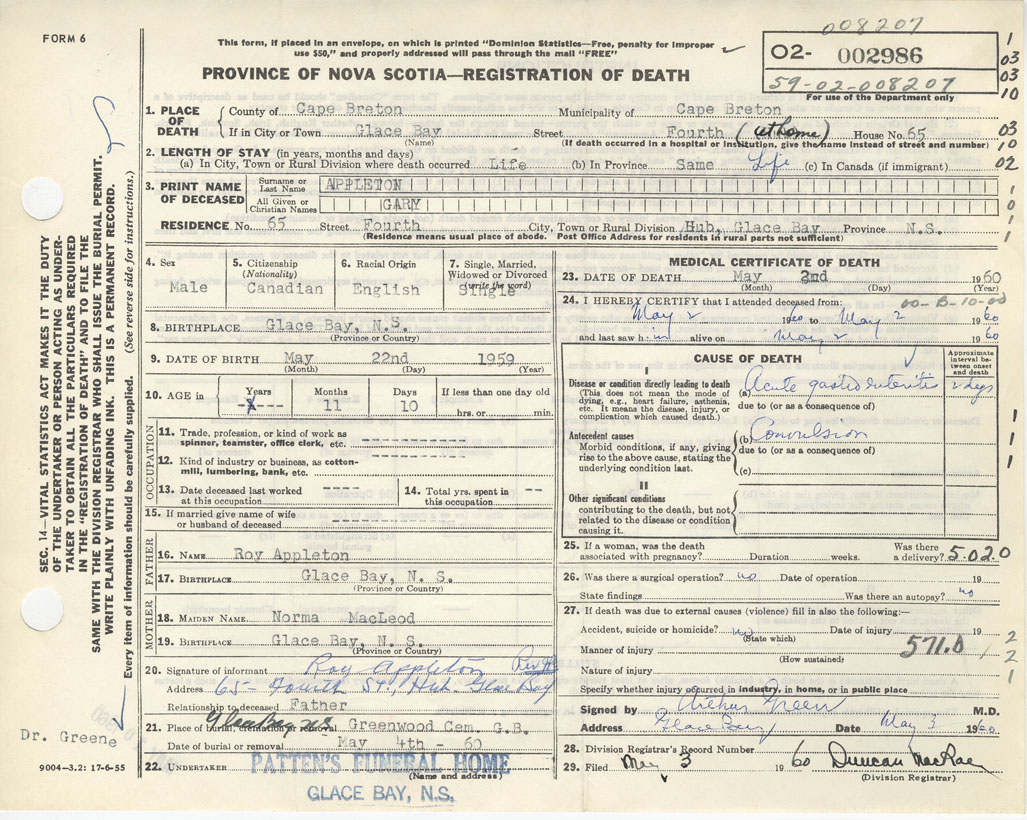 008207
FORM 6
This form, if placed in an envelope, on which is printed "Dominion Statistics—Free, penalty for improper
use $50," and properly addressed will pass through the mail "FREE"
O2- 002986
59-02-008207
For use of the Department only
PROVINCE OF NOVA SCOTIA—REGISTRATION OF DEATH
1
03
03
10
1. PLACE OF DEATH
County of Cape Breton Municipality of Cape Breton
If in City or Town Glace Bay Street Fourth (at home) House No. 65
03
(Name) (If death occurred in a hospital or institution, give the name instead of street and number)
10
2. LENGTH OF STAY (in years, months and days)
(a) In City, Town or Rural Division where death occurred Life (b) In Province Same Life (c) In Canada (if immigrant)
02
3. PRINT NAME OF DECEASED
Surname or Last Name APPLETON
1
All Given or Christian Names GARY
0
1
RESIDENCE No. 65 Street Fourth City, Town or Rural Division Hub, Glace Bay Province N.S.
1
(Residence means usual place of abode. Post Office Address for residents in rural parts not sufficient)
SEC. 14—VITAL STATISTICS ACT MAKES IT THE DUTY
OF THE UNDERTAKER OR PERSON ACTING AS UNDER-
TAKER TO OBTAIN ALL THE PARTICULARS REQUIRED
IN THE "REGISTRATION OF DEATH" AND TO FILE THE
SAME WITH THE DIVISION REGISTRAR WHO SHALL ISSUE THE BURIAL PERMIT.
WRITE PLAINLY WITH UNFADING INK. THIS IS A PERMANENT RECORD.
Every item of information should be carefully supplied. (See reverse side for instructions.)
4. Sex
Male
5. Citizenship
(Nationality)
Canadian
6. Racial Origin
English
7. Single, Married,
Widowed or Divorced
(write the word)
Single
8. BIRTHPLACE Glace Bay, N.S.
(Province or Country)
9. DATE OF BIRTH May 22nd 1959
(Month) (Day) (Year)
10. AGE
Years Months Days If less than one day old
11 10 hrs. or min.
OCCUPATION
11. Trade, profession, or kind of work as
spinner, teamster, office clerk, etc. ------------
12. Kind of industry or business, as cotton-
mill, lumbering, bank, etc. ------------
13. Date deceased last worked
at this occupation ----
14. Total yrs. spent in
this occupation --
15. If married give name of wife
or husband of deceased ------------
FATHER
16. NAME Roy Appleton
17. BIRTHPLACE Glace Bay, N. S.
(Province or Country)
MOTHER
18. MAIDEN NAME Norma MacLeod
19. BIRTHPLACE Glace Bay, N. S.
(Province or Country)
20. Signature of informant Roy Appleton
Address 65- Fourth St., Hub- Glace Bay
Relationship to deceased Father
21. Place of burial, cremation or removal Glace Bay NS Greenwood Cem. G.B.
Date of burial or removal May 4th - 60
22. UNDERTAKER PATTEN'S FUNERAL HOME
(Name and address)
GLACE BAY, N.S.
Dr. Greene
9004-3.2: 17-6-55
MEDICAL CERTIFICATE OF DEATH
23. DATE OF DEATH May 2nd 1960
(Month) (Day) (Year)
24. I HEREBY CERTIFY that I attended deceased from:
May 2 1960 to May 2 1960
and last saw him alive on May 2 1960
CAUSE OF DEATH
Approximate
interval be-
tween onset
and death
I
Disease or condition directly leading to death
(This does not mean the mode of
dying, e.g., heart failure, asthenia,
etc. It means the disease, injury, or
complication which caused death.)
(a) Acute gastro enteritis 2 days
due to (or as a consequence of)
Antecedent causes
Morbid conditions, if any, giving
rise to the above cause, stating the
underlying condition last.
(b) Convulsion
due to (or as a consequence of)
(c)
1
1
1
II
Other significant conditions
contributing to the death, but not
related to the disease or condition
causing it.
25. If a woman, was the death
associated with pregnancy? Duration weeks. Was there
a delivery? 5.020
26. Was there a surgical operation? no Date of operation 19
State findings Was there an autopsy? no
27. If death was due to external causes (violence) fill in also the following:—
Accident, suicide or homicide? no Date of injury 19
(State which)
2
Manner of injury 571.0
(How sustained)
2
Nature of injury
1
Specify whether injury occurred in industry, in home, or in public place
Signed by Arthur Green M.D.
Address Glace Bay Date May 3 1960
28. Division Registrar's Record Number
29. Filed May 3 1960 Duncan MacRae
(Division Registrar)